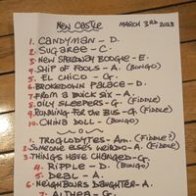 NEW CASTLE MARCH 3RD
1. CANDYMAN - D.
2. SUGAREE - C.
3. NEW SPEEDWAY BOOGIE - E.
4. SHIP OF FOOLS - A. (BONGO)
5. EL CHICO - G.
6. BROKEDOWN PALACE - D.
7. FROM A BUICK SIX - A.
8. OILY SLEEPERS - G. (FIDDLE)
9. RUNNING FOR THE BUS - G. (FIDDLE)
10. CHINA DOLL - (BONGO)
1. TROGLODYTES - Am. (FIDDLE?)
2. SOMEONE ELSE'S WEIRDO - A. (FIDDLE)
3. THINGS HAVE CHANGED - G.
4. RIPPLE - D. (BONGO)
5. DEAL - A.
6. NEIGHBOURS DAUGHTER - A.
7. ALTHEA - C